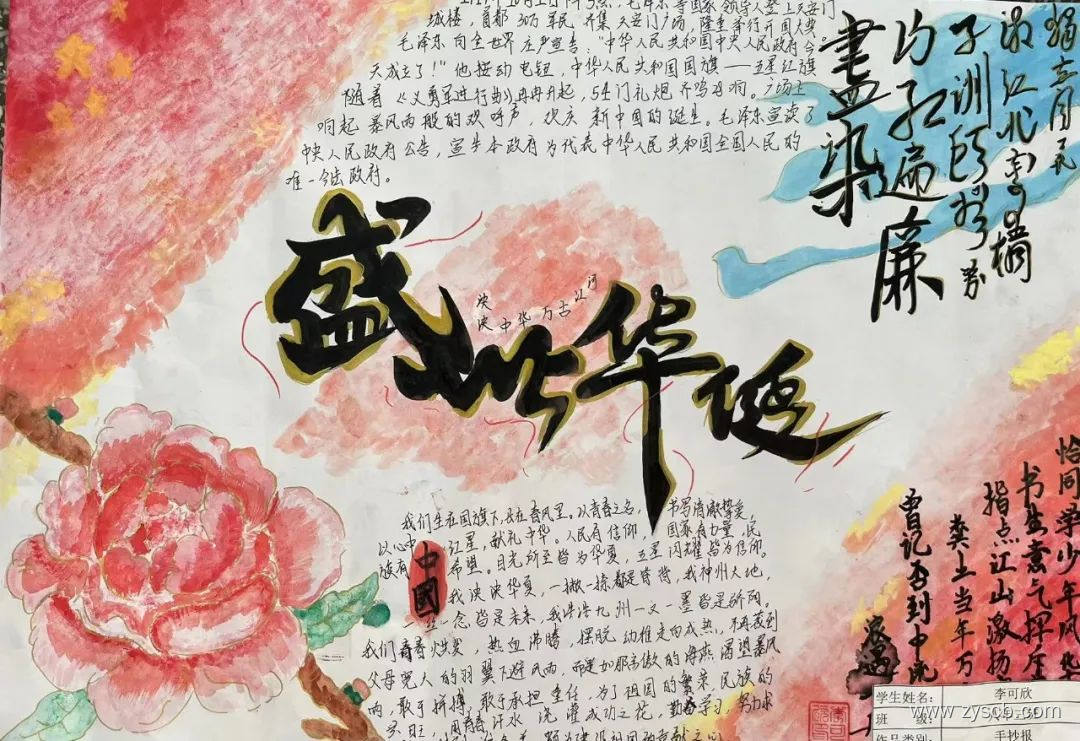 毛泽东等国家领导人登上天安门
城楼，首都30万军民齐集天安门广场，隆重举行开国大典。
毛泽东向全世界庄严宣告："中华人民共和国中央人民政府今
天成立了！"他按动电钮，中华人民共和国国旗——五星红旗
随着《义勇军进行曲》冉冉升起，54门礼炮齐鸣28响。广场上
响起暴风雨般的欢呼声，欢庆新中国的诞生。毛泽东宣读了
中央人民政府公告，宣告本政府为代表中华人民共和国全国人民的
唯一合法政府。
独立
湘江北 橘
子洲头
红遍
盡染
盛世华诞
泱泱中华万古江河
我们生在国旗下，长在春风里。以青春之名，书写清澈挚爱，
以心中红星，献礼中华。人民有信仰，国家有力量，民
族有希望。目光所至皆为华夏，五星闪耀皆为信仰。
中國
我泱泱华夏，一撇一捺都是脊背，我神州大地，
一丝一念皆是未来，我浩浩九州一文一墨皆是
我们青春 热血沸腾，摆脱幼稚走向成熟，不再
父母宽大的羽翼下避风雨，而是如那高傲的海燕渴望暴风
雨，敢于拼搏，敢于承担责任，为了祖国的繁荣，民族的
用青春，汗水浇灌成功之花，勤奋学习，努力
恰同学少年风华
书生意气挥斥
指点江山激扬
粪土当年万
曾记否到中流
浪遏
学生姓名： 李可欣
班级：
作品类别： 手抄报
www.zyscb.com